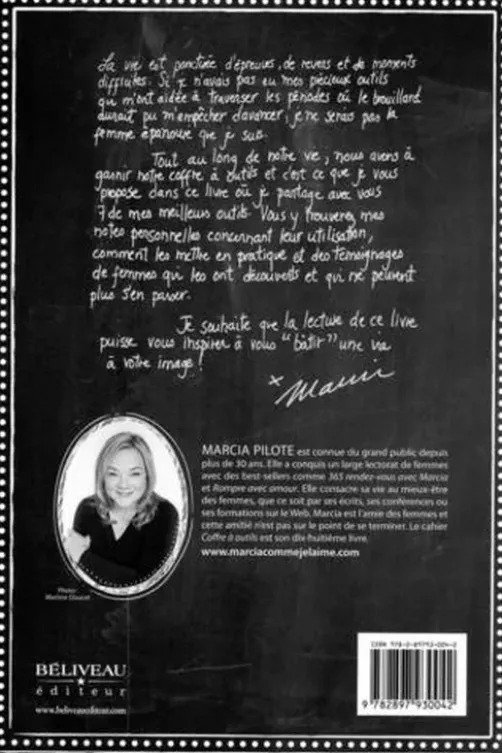 La vie est ponctuée d'épreuves, de revers et de moments
difficiles. Si je n'avais pas eu mes précieux outils
qui m'ont aidée à traverser les périodes où le brouillard
aurait pu m'empêcher d'avancer, je ne serais pas la
femme épanouie que je suis.
Tout au long de notre vie, nous avons à
garnir notre coffre à outils et c'est ce que je vous
propose dans ce livre où je partage avec vous
7 de mes meilleurs outils. Vous y trouverez mes
notes personnelles concernant leur utilisation,
comment les mettre en pratique et des témoignages
de femmes qui les ont découverts et qui ne peuvent
plus s'en passer.
Je souhaite que la lecture de ce livre
puisse vous inspirer à vous "bâtir" une vie
à votre image !
x Marcia
MARCIA PILOTE est connue du grand public depuis
plus de 30 ans. Elle a conquis un large lectorat de femmes
avec des best-sellers comme 365 rendez-vous avec Marcia
et Rompre avec amour. Elle consacre sa vie au mieux-être
des femmes, que ce soit par ses écrits, ses conférences ou
ses formations sur le Web. Marcia est l'amie des femmes et
cette amitié n'est pas sur le point de se terminer. Le cahier
Coffre à outils est son dix-huitième livre.
www.marciacommejelaime.com
Photo:
Martine Doucet
BÉLIVEAU
éditeur
www.beliveauediteur.com
ISBN 978-2-89793-004-2
9 782897 930042